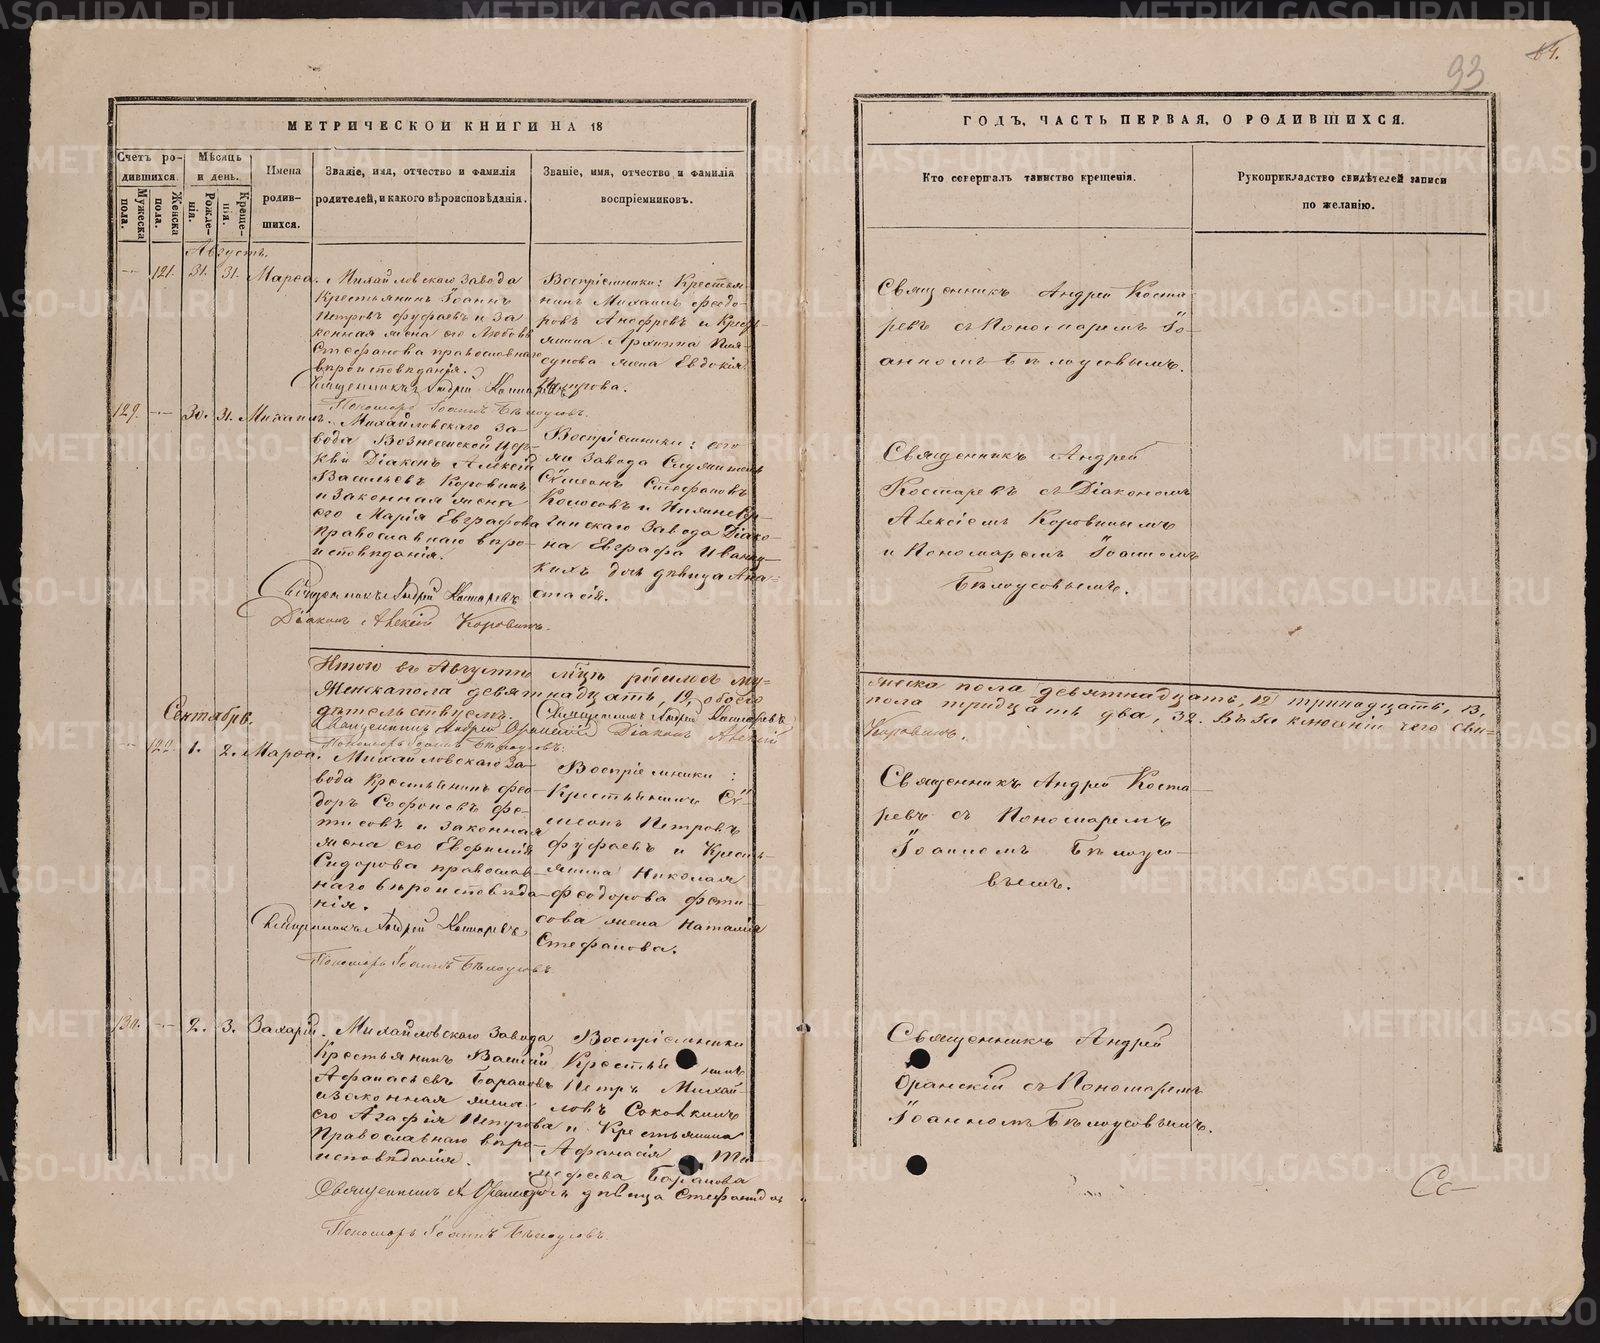 93
МЕТРИЧЕСКОЙ КНИГИ НА 18
ГОДЪ, ЧАСТЬ ПЕРВАЯ, О РОДИВШИХСЯ.
Счетъ ро-
дившихся.
Мужеска
пола.
Женска
пола.
Мѣсяцъ
и день.
Рожде-
нія.
Креще-
нія.
Имена
родив-
шихся.
Званіе, имя, отчество и фамилія
родителей, и какого вѣроисповѣданія.
Званіе, имя, отчество и фамилія
воспріемниковъ.
Кто совершалъ таинство крещенія.
Рукоприкладство свидѣтелей записи
по желанію.
Августъ.
121. 31. 31. Марѳа.
Михайловскаго Завода
Крестьянинъ Іоаннъ
Петровъ Фуфаевъ и за-
конная жена его Любовь
Стефанова православнаго
вѣроисповѣданія.
Священникъ Андрей Костаревъ
Пономарь Іоаннъ Бѣлоусовъ.
Воспріемники: Крестья-
нинъ Михаилъ Феодо-
ровъ и Кресть-
янина Архиппа
жена Евдокія
Петрова.
Священникъ Андрей Коста-
ревъ съ Пономаремъ Іо-
анномъ Бѣлоусовымъ.
129. 30. 31. Михаилъ.
Михайловскаго За-
вода Вознесенской Цер-
кви Діаконъ Алексій
Васильевъ Коровинъ
и законная жена
его Марія Евграфова
Православнаго вѣро-
исповѣданія.
Священникъ Андрей Костаревъ
Діаконъ Алексій Коровинъ.
Воспріемники: сего
же Завода Служитель
Сѵмеонъ Стефановъ
Колосовъ и Нижнесер-
гинскаго Завода Діако-
на Евграфа Иваниц-
кихъ дочь дѣвица Ана-
стасія.
Священникъ Андрей
Костаревъ съ Діакономъ
Алексіемъ Коровинымъ
и Пономаремъ Іоанномъ
Бѣлоусовымъ.
Итого въ Августѣ мѣцѣ родилось му-
жеска пола девятнадцать, 19, тринадцать, 13,
Женска пола девятнадцать, 19, обоего
пола тридцать два, 32. Въ заключеніи чего сви-
дѣтельствуемъ. Священникъ Андрей Костаревъ
Священникъ Андрей Оранскій Діаконъ Алексій
Коровинъ.
Пономарь Іоаннъ Бѣлоусовъ.
Сентябрь.
122. 1. 2. Марѳа.
Михайловскаго За-
вода Крестьянинъ Фео-
доръ Софоновъ Фе-
тисовъ и законная
жена его Евфимія
Сидорова православ-
наго вѣроисповѣда-
нія.
Священникъ Андрей Костаревъ
Пономарь Іоаннъ Бѣлоусовъ
Воспріемники:
Крестьянинъ Сѵ-
меонъ Петровъ
Фуфаевъ и Кресть-
янина Николая
Феодорова Фети-
сова жена Наталія
Стефанова.
Священникъ Андрей Коста-
ревъ съ Пономаремъ
Іоанномъ Бѣлоусо-
вымъ.
130. 2. 3. Захарій.
Михайловскаго Завода
Крестьянинъ Василій
Афанасьевъ Барановъ
и законная жена
его Агафія Петрова
Православнаго вѣро-
исповѣданія.
Священникъ А. Оранскій
Пономарь Іоаннъ Бѣлоусовъ.
Воспріемники
Крестьянинъ
Петръ Михай-
ловъ Соколкинъ
и Крестьянина
Афанасія Ти-
мофеева Баранова
дочь дѣвица Стефанида
Священникъ Андрей
Оранскій съ Пономаремъ
Іоанномъ Бѣлоусовымъ.
Со-
METRIKI.GASO-URAL.RU